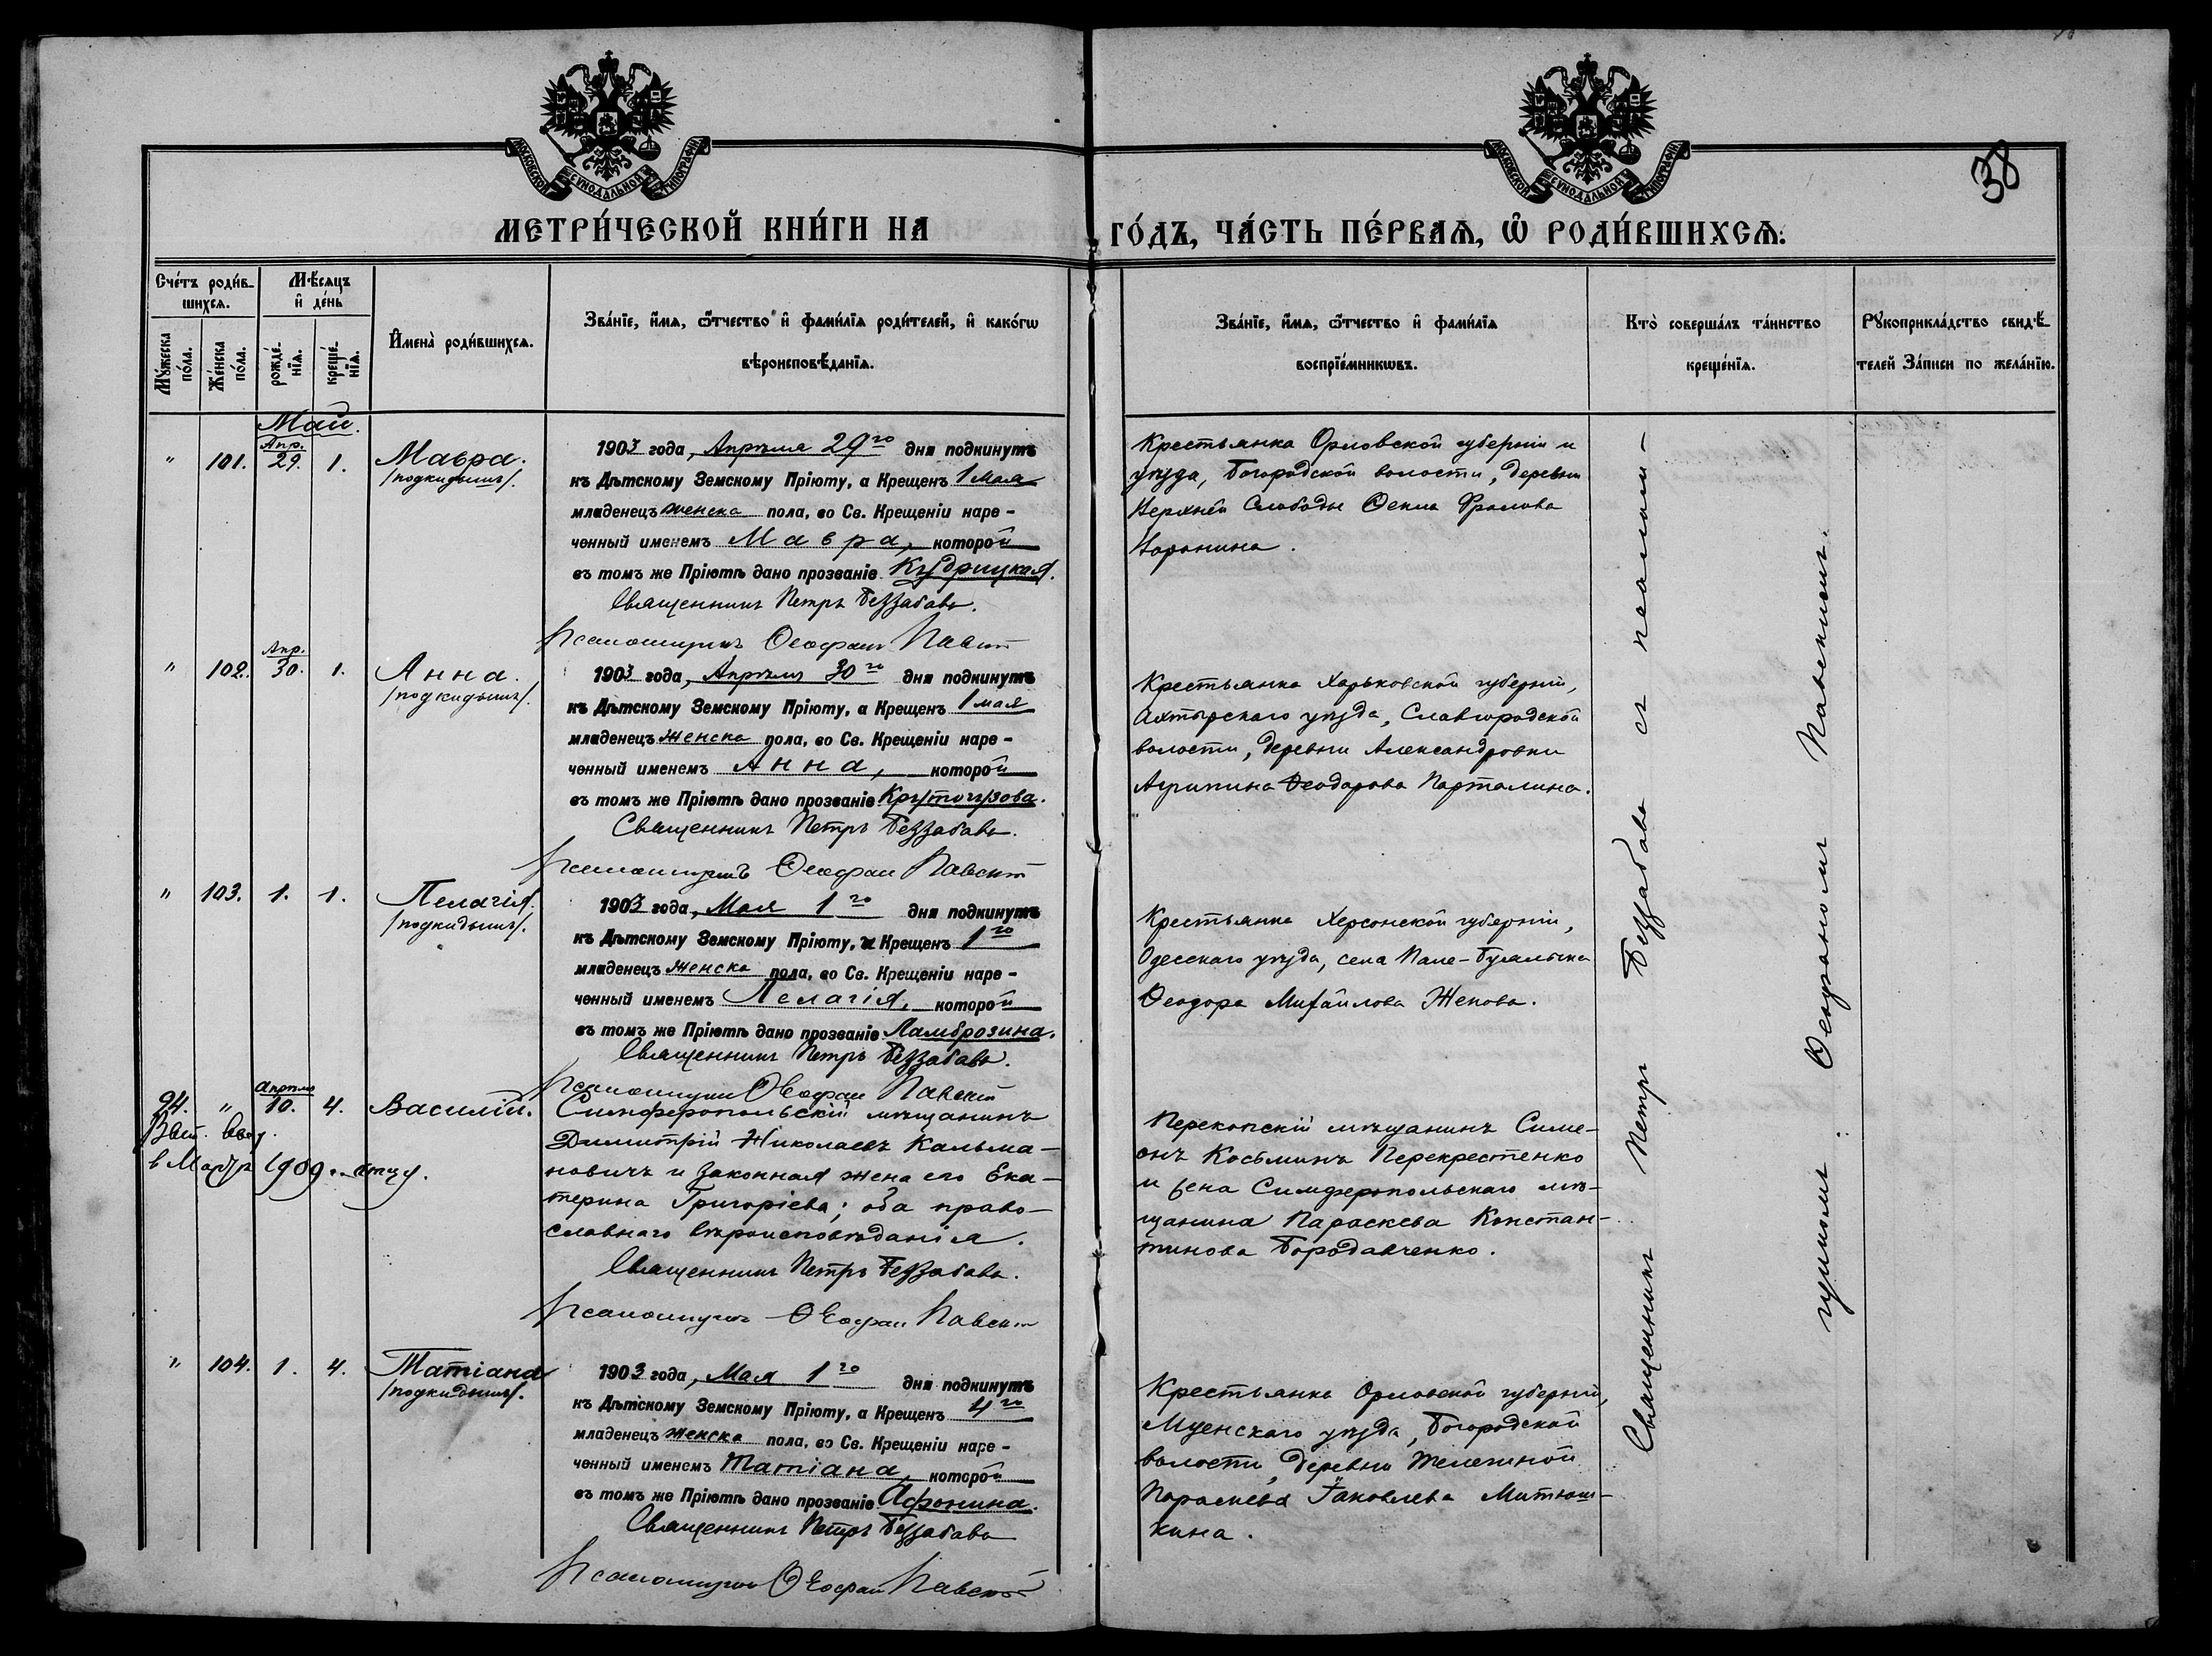 МОСКОВСКОЙ СѴНОДАЛЬНОЙ ТИПОГРАФІИ
МОСКОВСКОЙ СѴНОДАЛЬНОЙ ТИПОГРАФІИ
38
МЕТРИ́ЧЕСКОЙ КНИ́ГИ НА ГО́ДЪ, ЧА́СТЬ ПЕ́РВАѦ, Ѡ҆ РОДИ́ВШИХСѦ:
Сче́тъ роди́в-
шихсѧ.
Мꙋ́жеска
по́ла.
Же́нска
по́ла.
Мѣ́сѧцъ
и҆ де́нь
рожде́-
нїѧ.
креще́-
нїѧ.
И҆мена̀ роди́вшихсѧ.
Зва́нїе, и҆́мѧ, ѻ҆́тчество и҆ фами́лїѧ роди́телей, и҆ како́гѡ
вѣроисповѣ́данїѧ.
Зва́нїе, и҆́мѧ, ѻ҆́тчество и҆ фами́лїѧ
воспрїе́мникѡвъ.
Кто̀ соверша́лъ та́инство
креще́нїѧ.
Рꙋкоприкла́дство свидѣ́-
телей За́писи по жела́нїю.
Май.
" 101. Апр. 29. 1. Мавра.
/подкидышъ/.
1903 года, Апрѣля 29го дня подкинутъ
къ Дѣтскому Земскому Пріюту, а Крещенъ 1 Мая
младенецъ женска пола, во Св. Крещеніи наре-
ченный именемъ Мавра, которой
въ томъ же Пріютѣ дано прозваніе Кудрицкая.
Священникъ Петръ Беззабава.
Псаломщикъ Ѳеофанъ Павскій
Крестьянка Орловской губерніи и
уѣзда, Богородской волости, деревни
Верхней Слободы Ѳекла Фролова
Воронина.
" 102. Апр. 30. 1. Анна.
/подкидышъ/.
1903 года, Апрѣля 30го дня подкинутъ
къ Дѣтскому Земскому Пріюту, а Крещенъ 1 мая
младенецъ женска пола, во Св. Крещеніи наре-
ченный именемъ Анна, которой
въ томъ же Пріютѣ дано прозваніе
Священникъ Петръ Беззабава.
Псаломщикъ Ѳеофанъ Павскій
Крестьянка Харьковской губерніи,
Ахтырскаго уѣзда, Славгородской
волости, деревни Александровки
Агрипина Ѳеодорова Порталина.
" 103. 1. 1. Пелагія.
/подкидышъ/.
1903 года, Мая 1го дня подкинутъ
къ Дѣтскому Земскому Пріюту, и Крещенъ 1го
младенецъ женска пола, во Св. Крещеніи наре-
ченный именемъ Пелагія, которой
въ томъ же Пріютѣ дано прозваніе Ламброзина.
Священникъ Петръ Беззабава.
Псаломщикъ Ѳеофанъ Павскій
Крестьянка Херсонской губерніи,
Одесскаго уѣзда, села
Ѳеодора Михайлова Жекова.
94. " Апрѣля 10. 4. Василій.
1909 г.
Симферопольскій мѣщанинъ
Димитрій Николаевъ Кальма-
новичъ и законная жена его Ека-
терина Григоріева; оба право-
славнаго вѣроисповѣданія.
Священникъ Петръ Беззабава.
Псаломщикъ Ѳеофанъ Павскій
Перекопскій мѣщанинъ Симе-
онъ Косьминъ Перекрестенко
и жена Симферопольскаго мѣ-
щанина Параскева Констан-
тинова Бородавченко.
" 104. 1. 4. Татіана
/подкидышъ/.
1903 года, Мая 1го дня подкинутъ
къ Дѣтскому Земскому Пріюту, а Крещенъ 4го
младенецъ женска пола, во Св. Крещеніи наре-
ченный именемъ Татіана, которой
въ томъ же Пріютѣ дано прозваніе Афонина.
Священникъ Петръ Беззабава
Псаломщикъ Ѳеофанъ Павскій
Крестьянка Орловской губерніи,
Мценскаго уѣзда, Богородской
волости, деревни
Параскева Іаковлева Митюш-
кина.
Священникъ Петръ Беззабава съ псалом-
щикомъ Ѳеофаномъ Павскимъ.